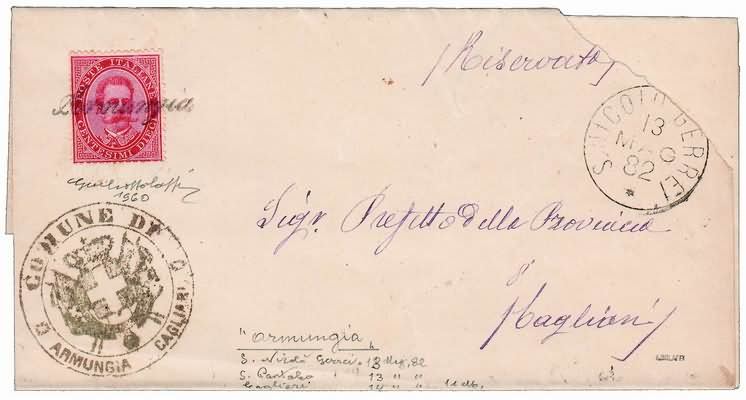 (Riservata)
POSTE ITALIANE
Armungia
CENTESIMI DIECI
1960
S. NICOLO GERREI
13
MAG
82
COMUNE DI
ARMUNGIA CAGLIARI
Sigr. Prefetto della Provincia
di
Cagliari
"armungia"
S. Nicolò Gerrei 13 Mag. 82
S. Pantaleo 13 " "
Cagliari 14 " "